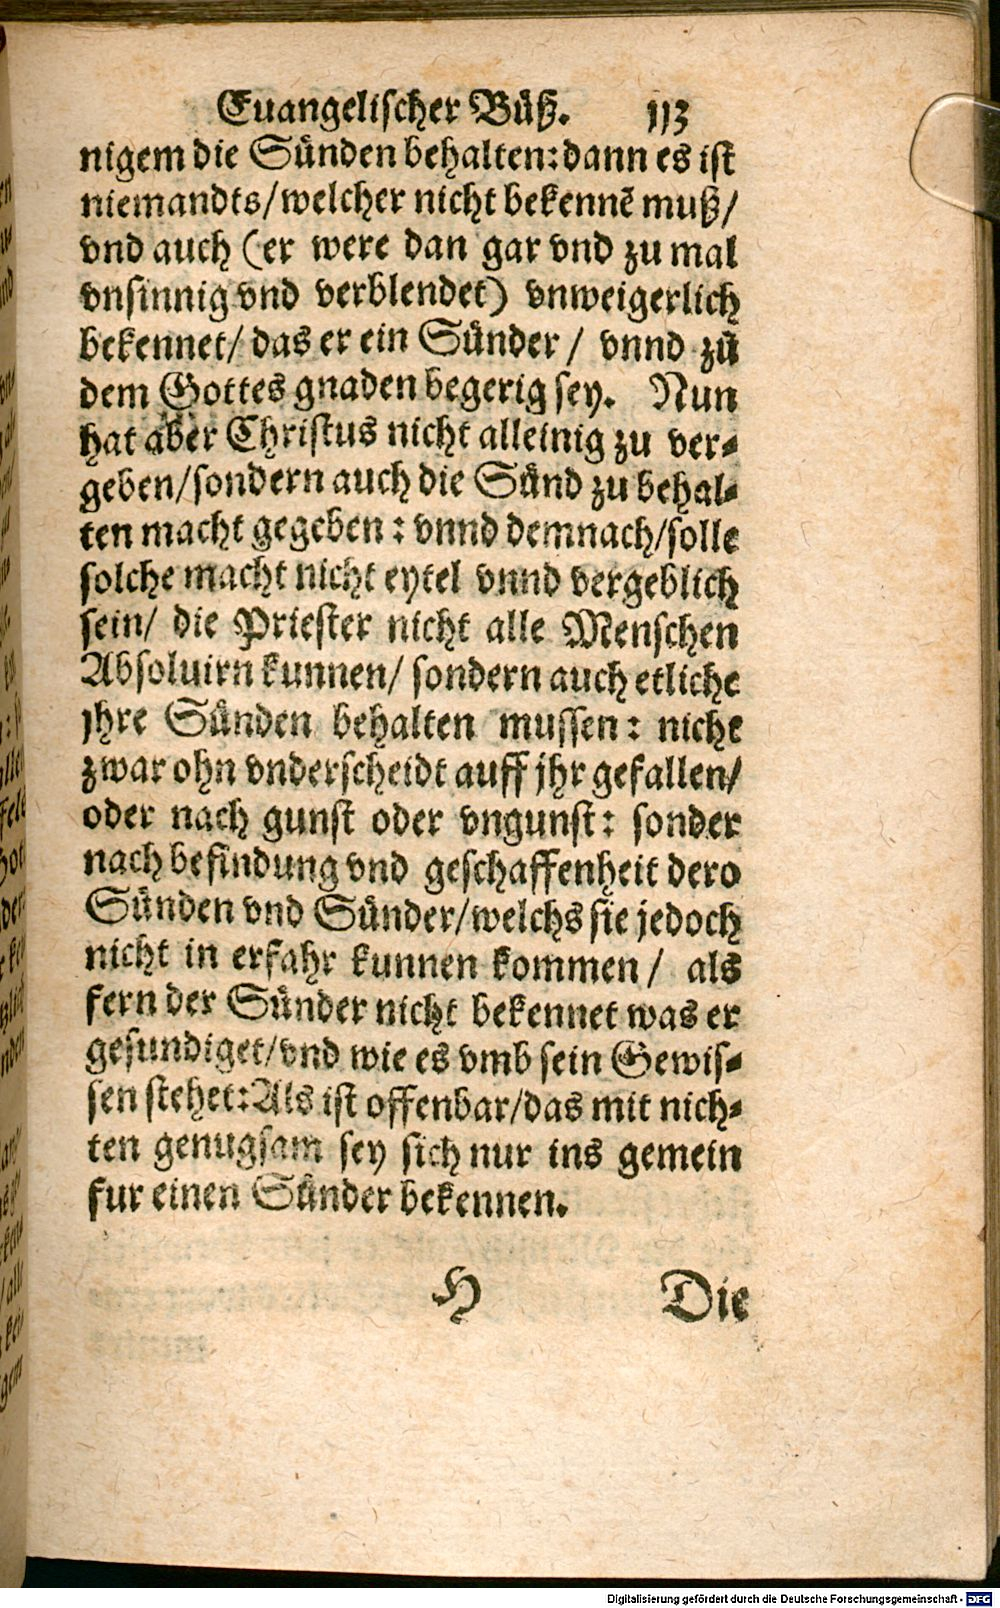 Euangelischer Buͤß. 113
nigem die Suͤnden behalten: dann es ist
niemandts/ welcher nicht bekennē muß/
vnd auch (er were dan gar vnd zu mal
vnsinnig vnd verblendet) vnweigerlich
bekennet/ das er ein Suͤnder / vnnd zuͤ
dem Gottes gnaden begerig sey. Nun
hat aber Christus nicht alleinig zu ver-
geben/ sondern auch die Suͤnd zu behal-
ten macht gegeben : vnnd demnach/ solle
solche macht nicht eytel vnnd vergeblich
sein/ die Priester nicht alle Menschen
Absoluirn kunnen/ sondern auch etliche
jhre Suͤnden behalten mussen: nicht
zwar ohn vnderscheidt auff jhr gefallen/
oder nach gunst oder vngunst: sonder
nach befindung vnd geschaffenheit dero
Suͤnden vnd Suͤnder/ welchs sie jedoch
nicht in erfahr kunnen kommen/ als
fern der Suͤnder nicht bekennet was er
gesundiget/ vnd wie es vmb sein Gewis-
sen stehet: Als ist offenbar/ das mit nich-
ten genugsam sey sich nur ins gemein
fur einen Suͤnder bekennen.
H Die
Digitalisierung gefördert durch die Deutsche Forschungsgemeinschaft - DFG